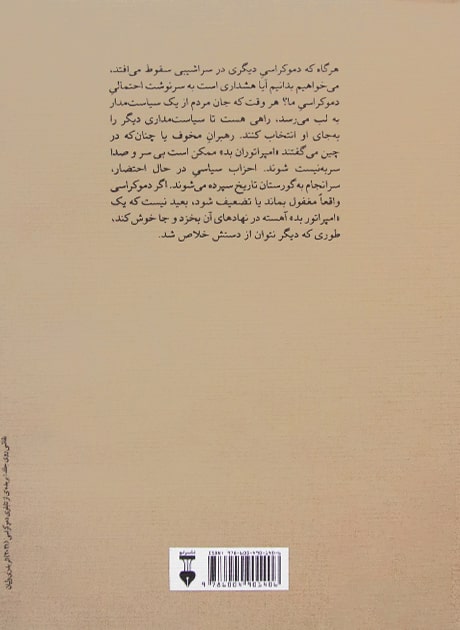 هرگاه که دموکراسیِ دیگری در سراشیبی سقوط می‌افتد،
می‌خواهیم بدانیم آیا هشداری است به سرنوشت احتمالیِ
دموکراسیِ ما؟ هر وقت که جان مردم از یک سیاست‌مدار
به لب می‌رسد، راهی هست تا سیاست‌مداری دیگر را
به‌جای او انتخاب کنند. رهبرانِ مخوف یا چنان‌که در
چین می‌گفتند «امپراتوران بد» ممکن است بی سر و صدا
سربه‌نیست شوند. احزاب سیاسیِ در حال احتضار،
سرانجام به‌گورستان تاریخ سپرده می‌شوند. اگر دموکراسی
واقعاً مغفول بماند یا تضعیف شود، بعید نیست که یک
«امپراتور بد» آهسته در نهادهای آن بخزد و جا خوش کند،
طوری که دیگر نتوان از دستش خلاص شد.
نقاشی روی جلد: برشی از تابلوی دموکراسی
نشر نو
ISBN: 978-600-490-140-6
9 786004 901406